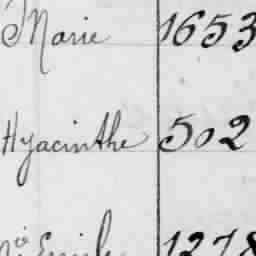 Marie 1653
Hyacinthe 502
Emile 1278